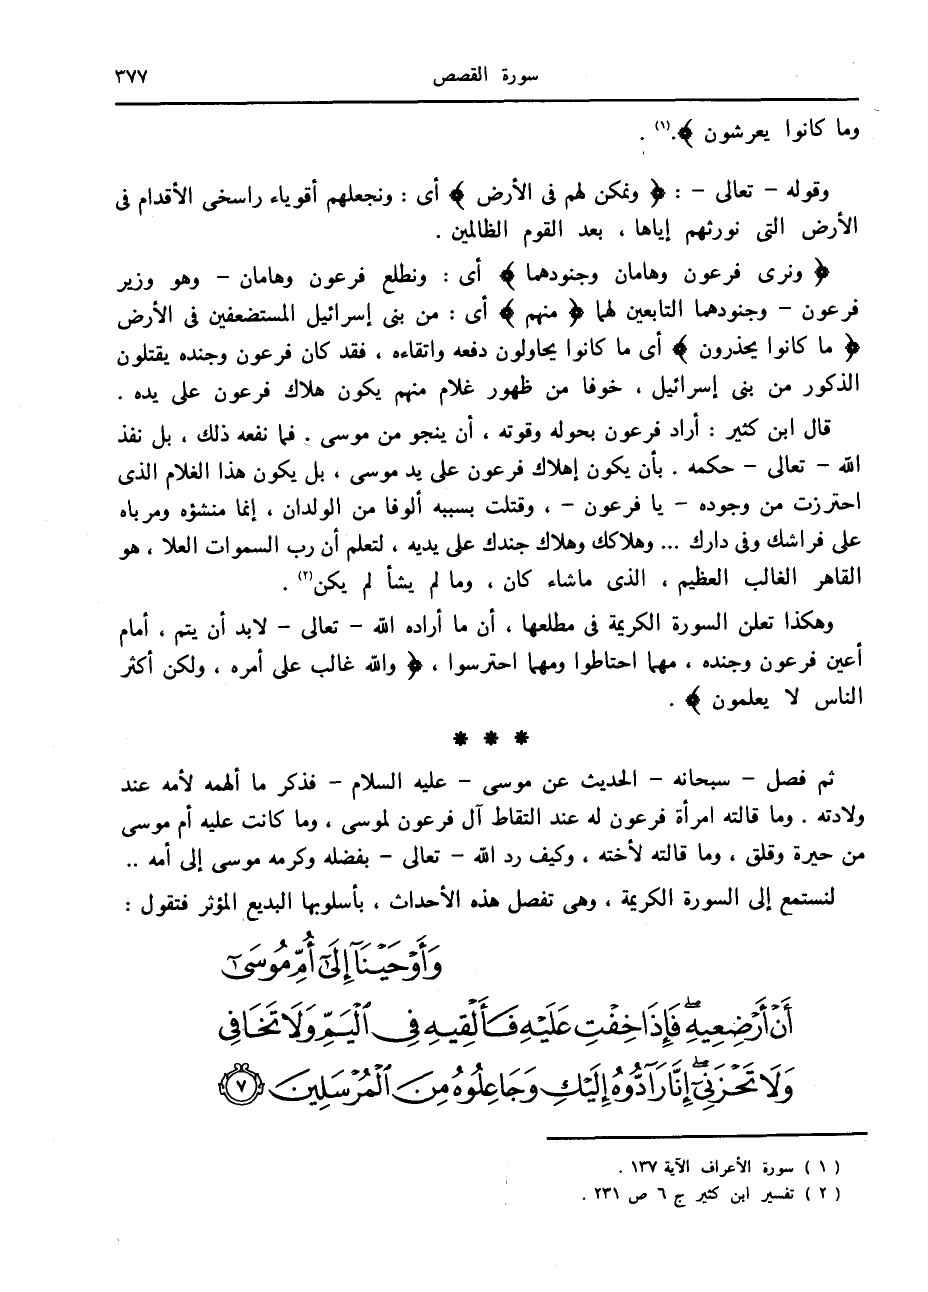 سورة القصص ٣٧٧
وما كانوا يعرشون ﴾.(١) .
وقوله – تعالى – : ﴿ ونمكن لهم فى الأرض ﴾ أى : ونجعلهم أقوياء راسخى الأقدام فى
الأرض التى نورثهم إياها ، بعد القوم الظالمين .
﴿ ونرى فرعون وهامان وجنودهما ﴾ أى : ونطلع فرعون وهامان – وهو وزير
فرعون – وجنودهما التابعين لهما ﴿ منهم ﴾ أى : من بنى إسرائيل المستضعفين فى الأرض
﴿ ما كانوا يحذرون ﴾ أى ما كانوا يحاولون دفعه واتقاءه ، فقد كان فرعون وجنده يقتلون
الذكور من بنى إسرائيل ، خوفا من ظهور غلام منهم يكون هلاك فرعون على يده .
قال ابن كثير : أراد فرعون بحوله وقوته ، أن ينجو من موسى . فما نفعه ذلك ، بل نفذ
الله – تعالى – حكمه . بأن يكون إهلاك فرعون على يد موسى ، بل يكون هذا الغلام الذى
احترزت من وجوده – يا فرعون – ، وقتلت بسببه ألوفا من الولدان ، إنما منشؤه ومرباه
على فراشك وفى دارك ... وهلاكك وهلاك جندك على يديه ، لتعلم أن رب السموات العلا ، هو
القاهر الغالب العظيم ، الذى ماشاء كان ، وما لم يشأ لم يكن(٢) .
وهكذا تعلن السورة الكريمة فى مطلعها ، أن ما أراده الله – تعالى – لابد أن يتم ، أمام
أعين فرعون وجنده ، مهما احتاطوا ومهما احترسوا ، ﴿ والله غالب على أمره ، ولكن أكثر
الناس لا يعلمون ﴾ .
* * *
ثم فصل – سبحانه – الحديث عن موسى – عليه السلام – فذكر ما ألهمه لأمه عند
ولادته . وما قالته امرأة فرعون له عند التقاط آل فرعون لموسى ، وما كانت عليه أم موسى
من حيرة وقلق ، وما قالته لأخته ، وكيف رد الله – تعالى – بفضله وكرمه موسى إلى أمه ..
لنستمع إلى السورة الكريمة ، وهى تفصل هذه الأحداث ، بأسلوبها البديع المؤثر فتقول :
وَأَوْحَيْنَآ إِلَىٰٓ أُمِّ مُوسَىٰٓ
أَنْ أَرْضِعِيهِ ۖ فَإِذَا خِفْتِ عَلَيْهِ فَأَلْقِيهِ فِى ٱلْيَمِّ وَلَا تَخَافِى
وَلَا تَحْزَنِىٓ ۖ إِنَّا رَآدُّوهُ إِلَيْكِ وَجَاعِلُوهُ مِنَ ٱلْمُرْسَلِينَ ٧
( ١ ) سورة الأعراف الآية ١٣٧ .
( ٢ ) تفسير ابن كثير ج ٦ ص ٢٣١ .